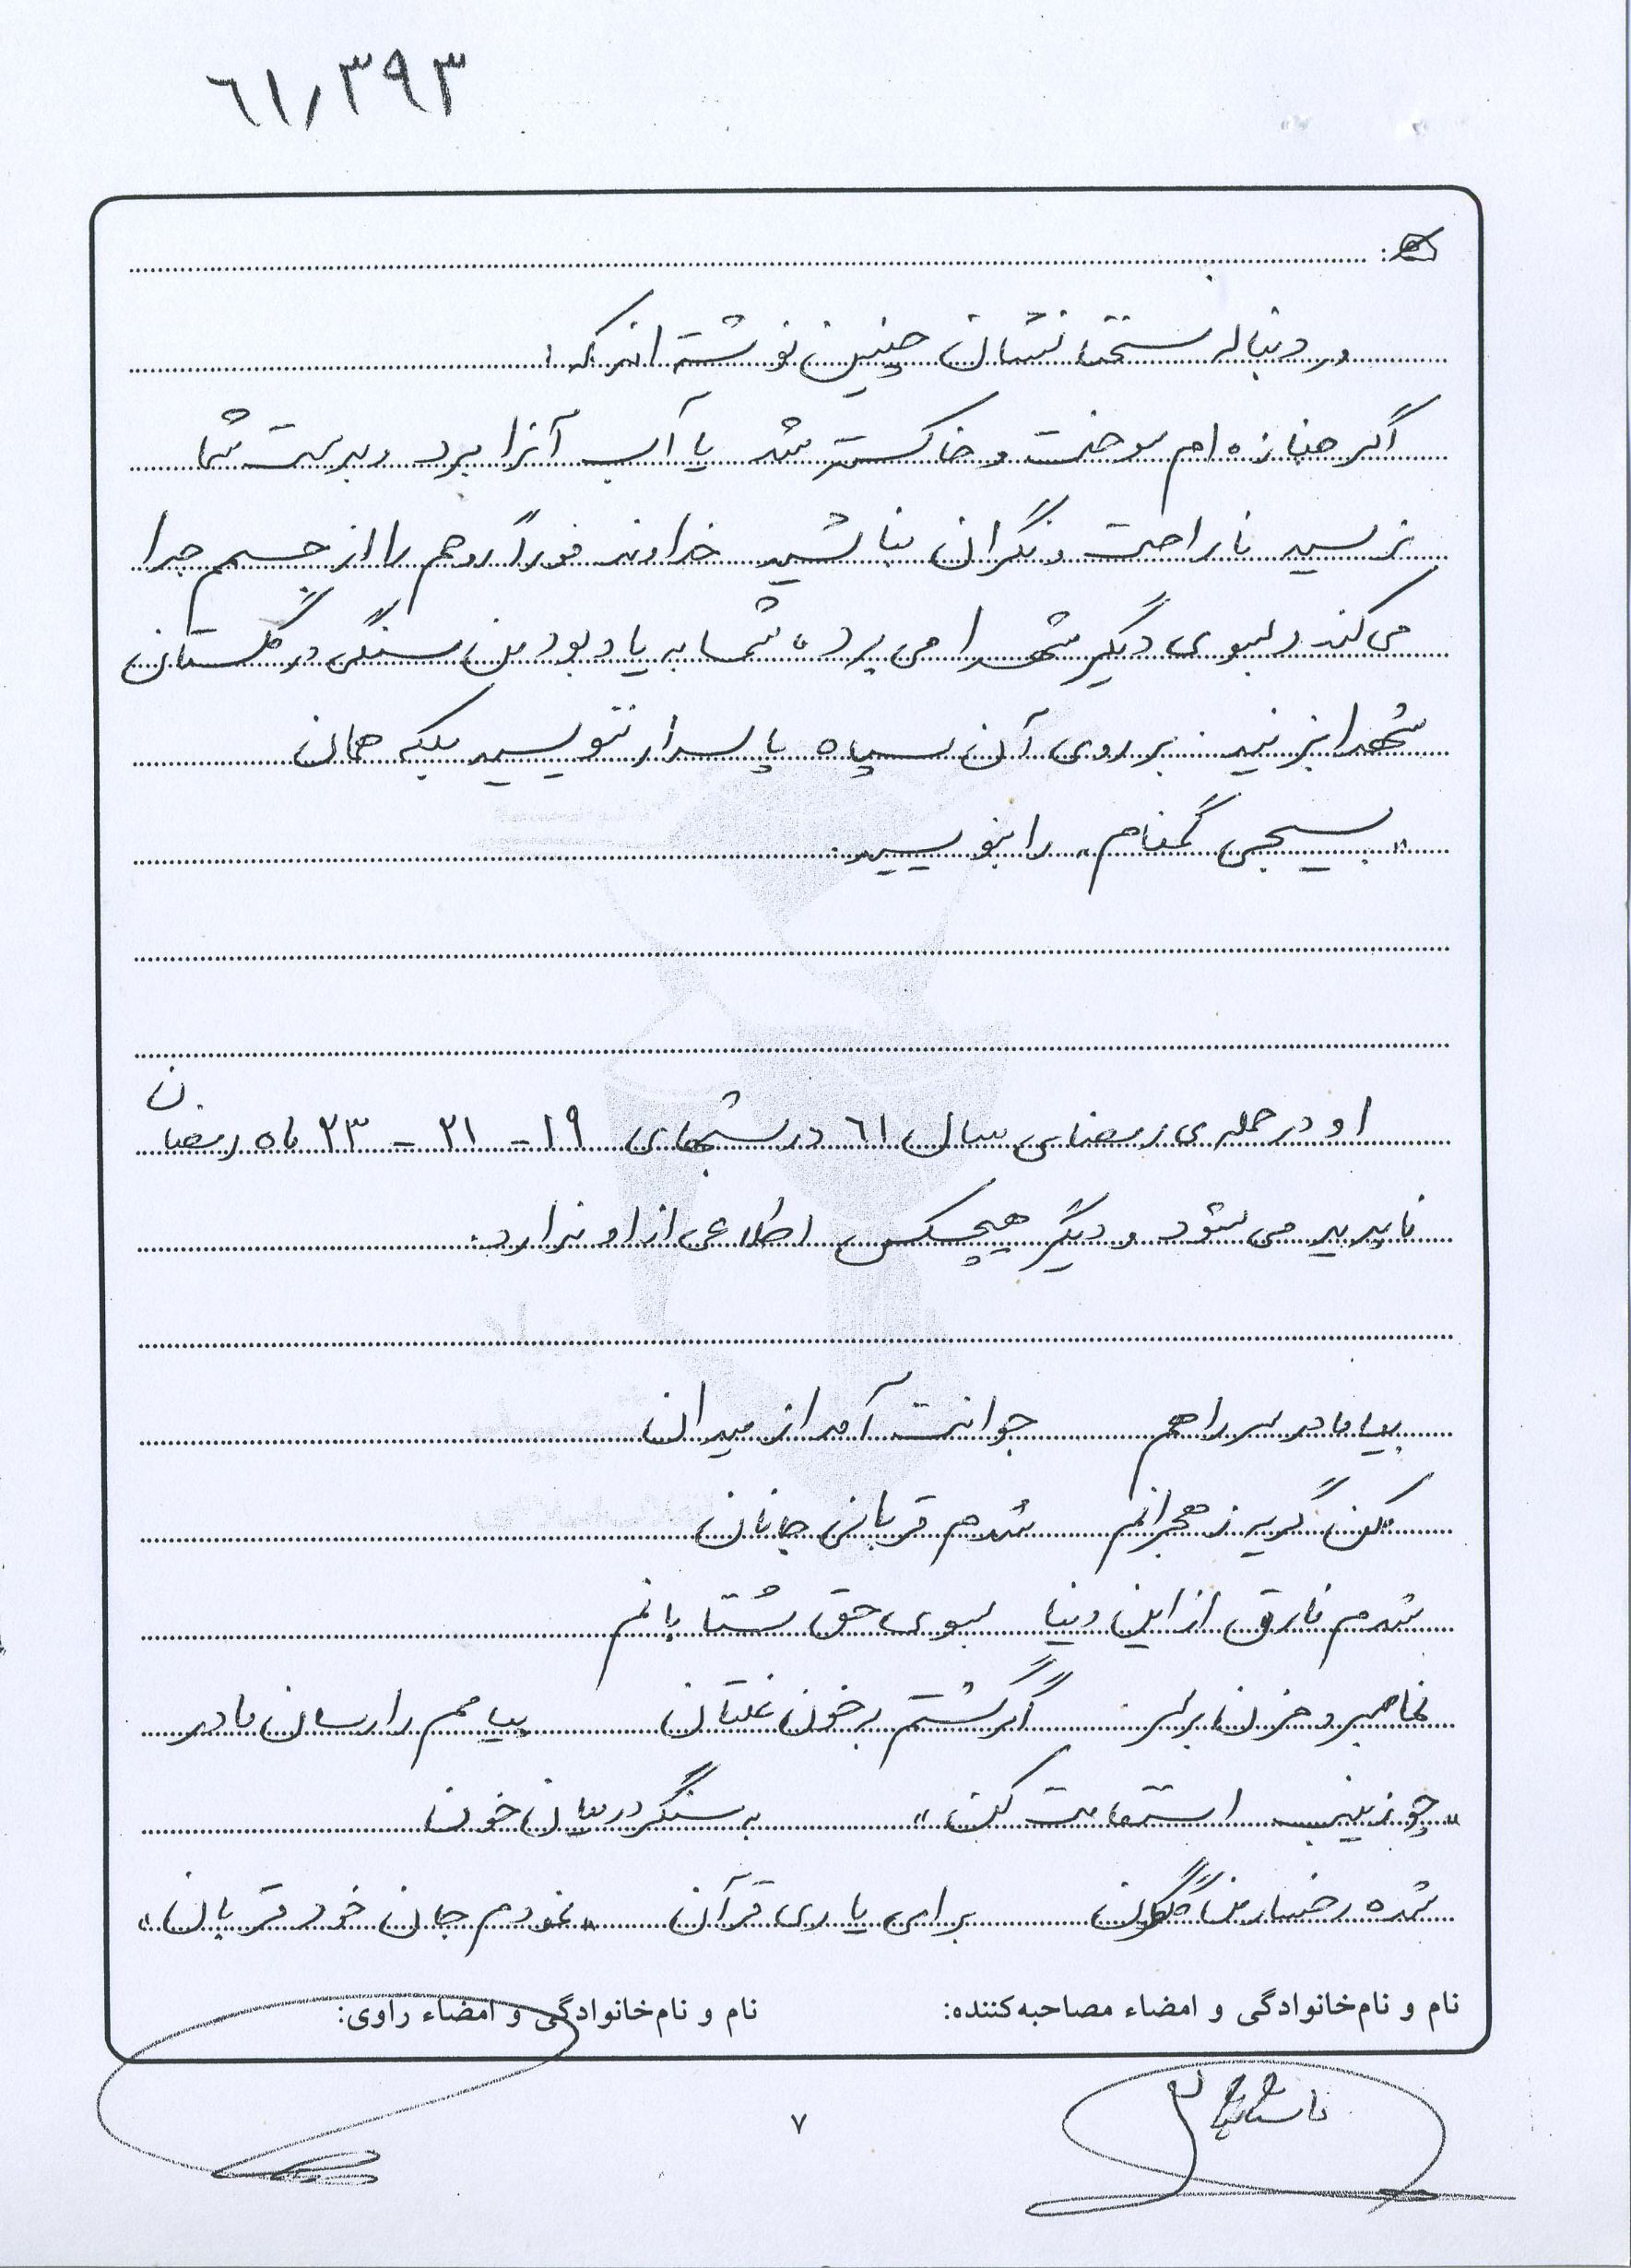 ۶۱٫۳۹۳
در دنباله سخنانشان چنین نوشته اند که:
اگر جنازه ام سوخت و خاکستر شد یا آب آنرا برد و بدست شما
نرسید ناراحت و نگران نباشید خداوند فوراً روحم را از جسم جدا
می کند و بسوی دیگر شهدا می برد، شما به یادبود من سنگی در گلستان
شهدا بزنید. بر روی آن سپاه پاسدار ننویسید بلکه همان
«بسیجی گمنام» را بنویسید.
او در حمله ی رمضان سال ۶۱ در شبهای ۱۹ - ۲۱ - ۲۳ ماه رمضان
ناپدید می شود و دیگر هیچکس اطلاعی از او ندارد.
بیا مادر سر راهم جوانت آمد از میدان
مکن گریه ز هجرانم شدم قربانی جانان
شدم فارق از این دنیا بسوی حق شتابانم
نما صبر و حزن بر اگر گشتم به خون غلتان پیامم را رسان مادر
«چو زینب استقامت کن» به سنگر در میان خون
شده رخسار من گلگون برای یاری قرآن «نمودم جان خود قربان»
نام و نام‌خانوادگی و امضاء مصاحبه‌کننده: نام و نام‌خانوادگی و امضاء راوی:
۷